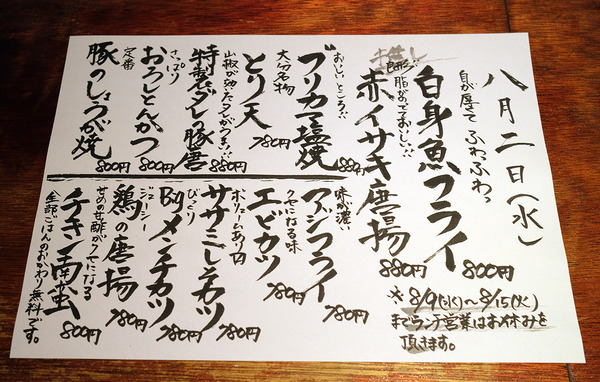 八月二日(水)
身が厚くて ふわふわっ
白身魚フライ 800円
推し
脂がのっておいしい
赤イサキ唐揚 880円
おいしいところ
ブリカマ塩焼 880円
大分名物
とり天 780円
山椒が効いたタレがうまい
特製ダレ豚唐 880円
さっぱり
おろしとんかつ 800円
定番
豚のしょうが焼 800円
味が濃い
アジフライ 780円
クセになる味
エビカツ 780円
ボリュームあり
ササミしそカツ 780円
びっくり
Bigメンチカツ 780円
ジューシー
鶏の唐揚 780円
甘めの甘酢がクセになる
チキン南蛮 800円
全部ごはんのおかわり無料です。
※8/9(水)〜8/15(火)
までランチ営業はお休みを
頂きます。